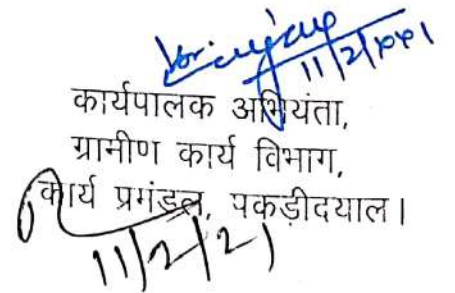 11/2/2021
कार्यपालक अभियंता,
ग्रामीण कार्य विभाग,
कार्य प्रमंडल, पकड़ीदयाल।
11/2/21